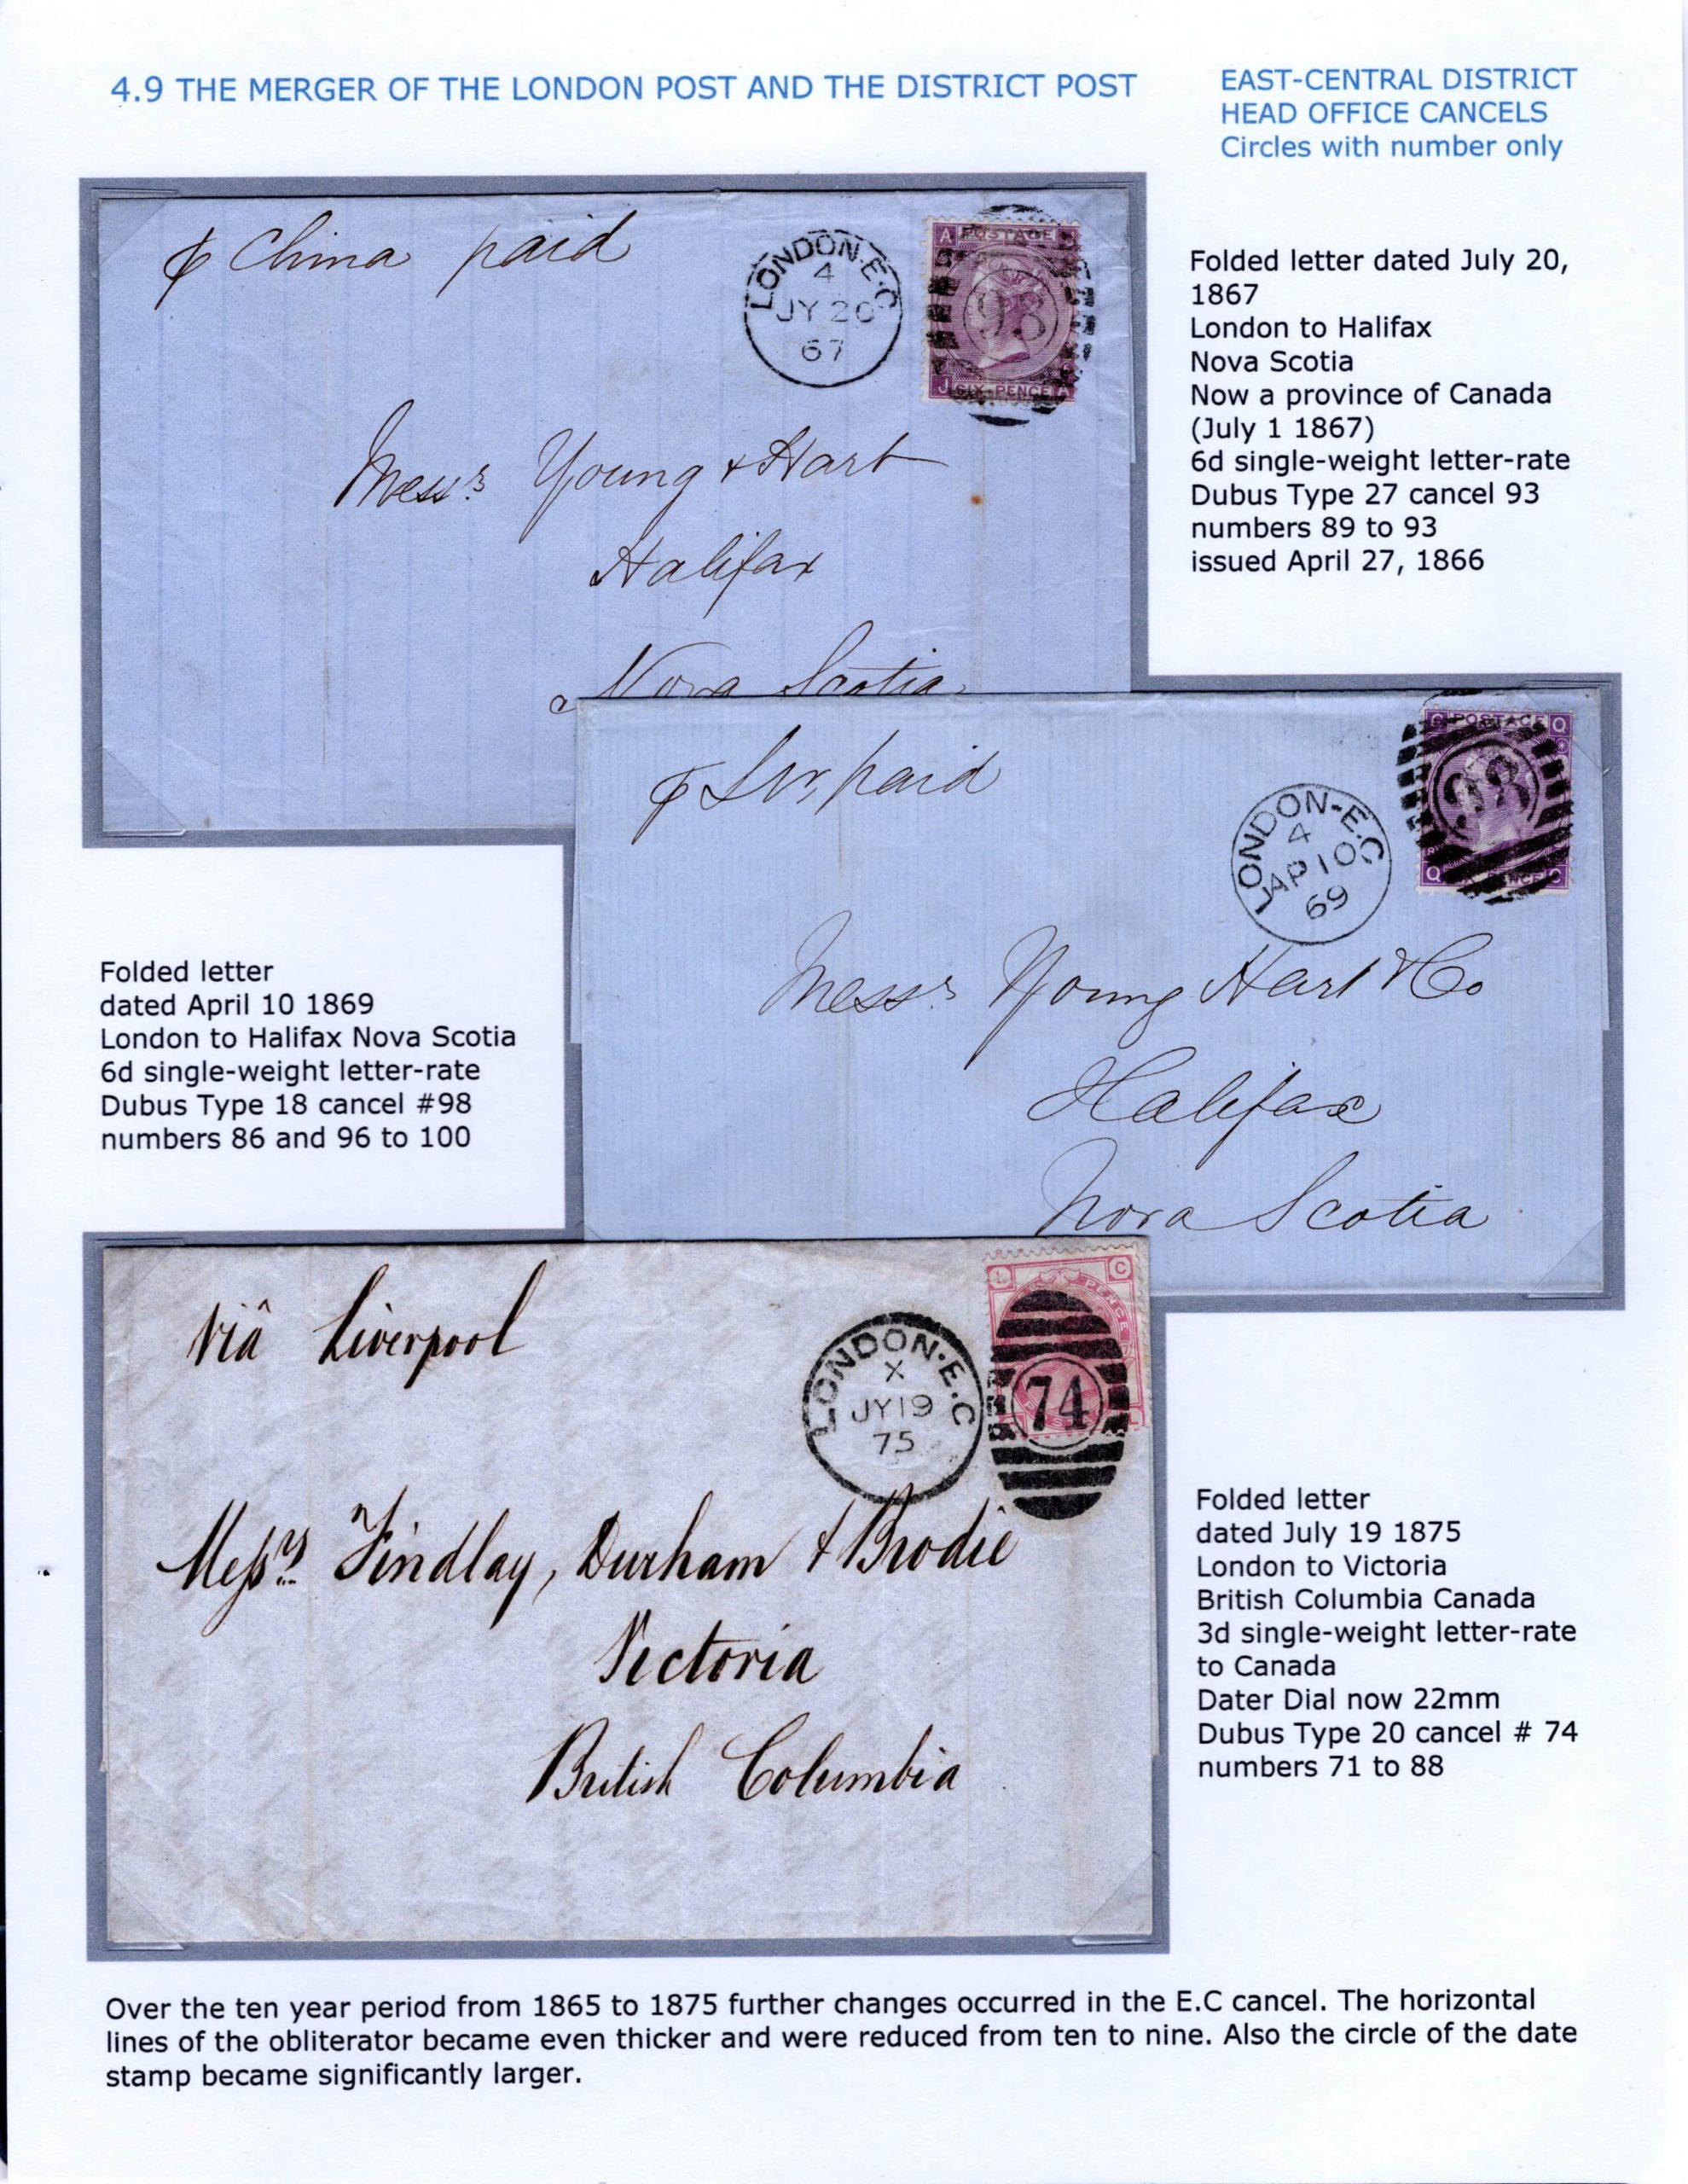 4.9 THE MERGER OF THE LONDON POST AND THE DISTRICT POST
EAST-CENTRAL DISTRICT
HEAD OFFICE CANCELS
Circles with number only
China paid
LONDON·E.C
4
JY 20
67
A POSTAGE J
93
J SIX·PENCE A
Messrs Young & Hart
Halifax
Nova Scotia
Folded letter dated July 20,
1867
London to Halifax
Nova Scotia
Now a province of Canada
(July 1 1867)
6d single-weight letter-rate
Dubus Type 27 cancel 93
numbers 89 to 93
issued April 27, 1866
paid
LONDON-E.C
4
AP 10
69
POSTAGE Q
98
Q PENCE
Messrs Young Hart & Co
Halifax
Nova Scotia
Folded letter
dated April 10 1869
London to Halifax Nova Scotia
6d single-weight letter-rate
Dubus Type 18 cancel #98
numbers 86 and 96 to 100
viâ Liverpool
LONDON·E.C
X
JY 19
75
L C
PENCE
74
Messrs Findlay, Durham & Brodie
Victoria
British Columbia
Folded letter
dated July 19 1875
London to Victoria
British Columbia Canada
3d single-weight letter-rate
to Canada
Dater Dial now 22mm
Dubus Type 20 cancel # 74
numbers 71 to 88
Over the ten year period from 1865 to 1875 further changes occurred in the E.C cancel. The horizontal
lines of the obliterator became even thicker and were reduced from ten to nine. Also the circle of the date
stamp became significantly larger.